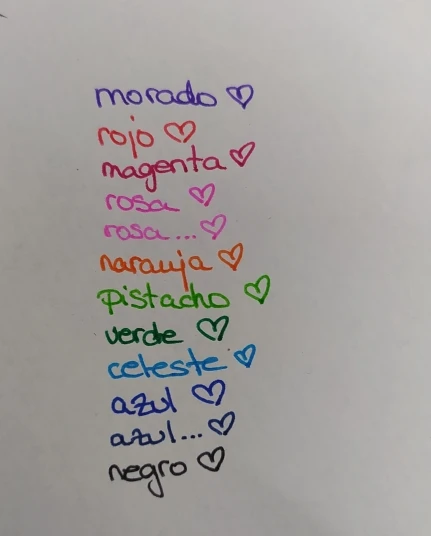 morado ♡
rojo ♡
magenta ♡
rosa ♡
rosa... ♡
naranja ♡
pistacho ♡
verde ♡
celeste ♡
azul ♡
azul... ♡
negro ♡